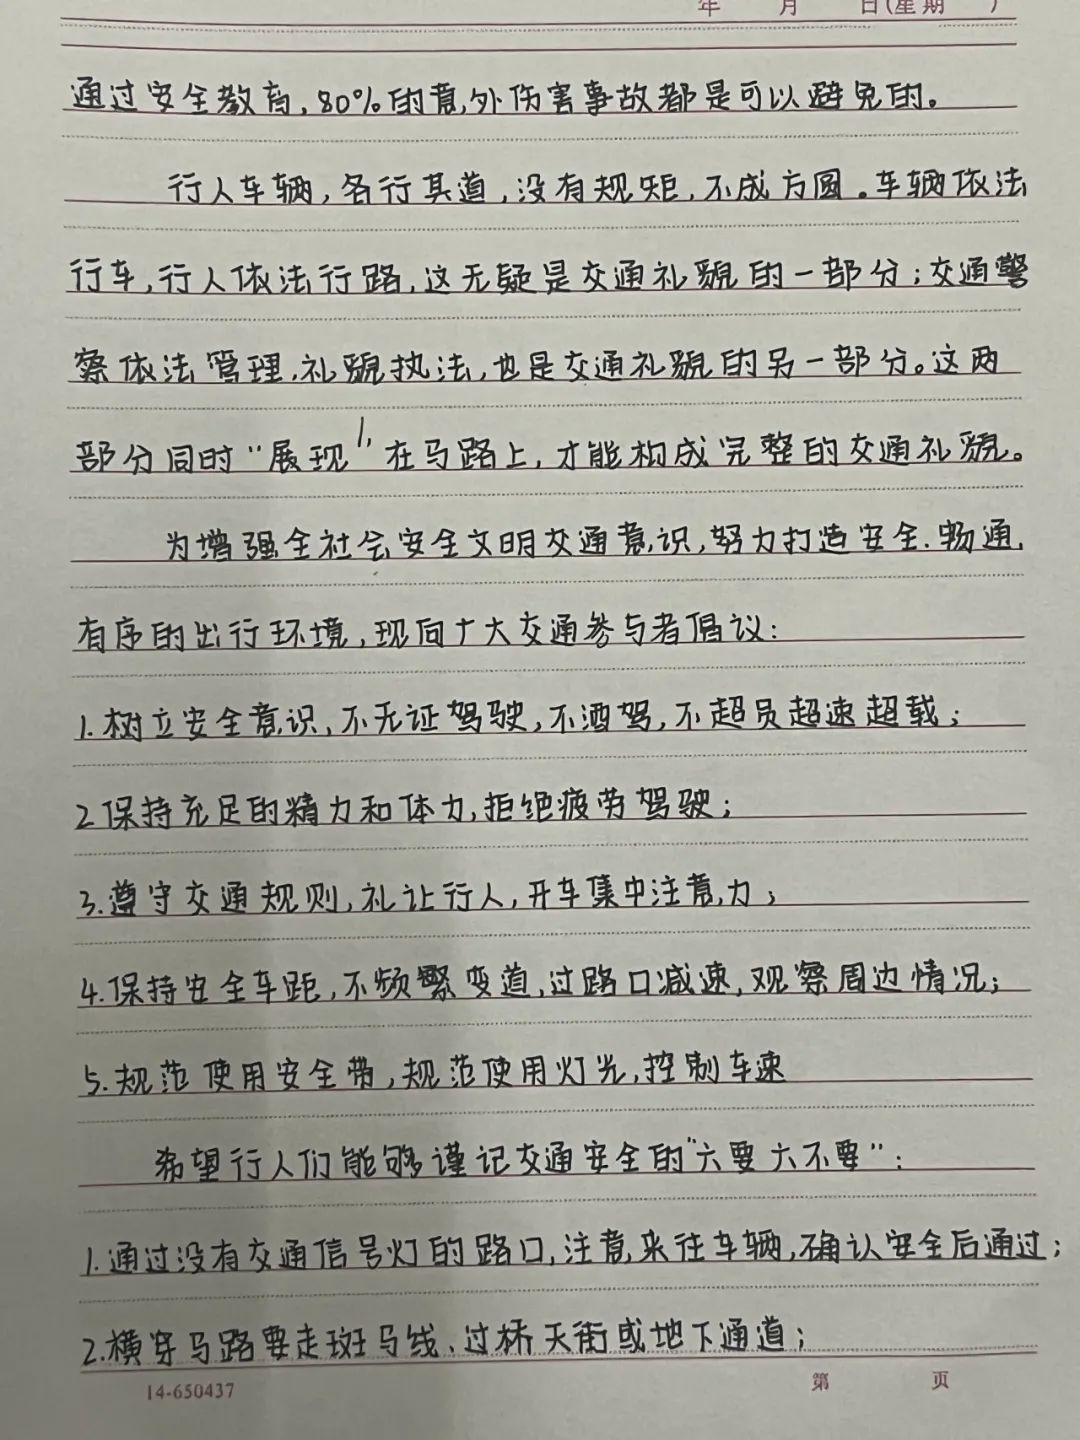 年 月 日(星期 )
通过安全教育,80%的意外伤害事故都是可以避免的。
行人车辆,各行其道,没有规矩,不成方圆。车辆依法
行车,行人依法行路,这无疑是交通礼貌的一部分;交通警
察依法管理,礼貌执法,也是交通礼貌的另一部分。这两
部分同时"展现",在马路上,才能构成完整的交通礼貌。
为增强全社会安全文明交通意识,努力打造安全、畅通、
有序的出行环境,现向广大交通参与者倡议:
1.树立安全意识,不无证驾驶,不酒驾,不超员超速超载;
2.保持充足的精力和体力,拒绝疲劳驾驶;
3.遵守交通规则,礼让行人,开车集中注意力;
4.保持安全车距,不频繁变道,过路口减速,观察周边情况;
5.规范使用安全带,规范使用灯光,控制车速
希望行人们能够谨记交通安全的"六要六不要":
1.通过没有交通信号灯的路口,注意来往车辆,确认安全后通过;
2.横穿马路要走斑马线、过桥天街或地下通道;
14-650437 第 页